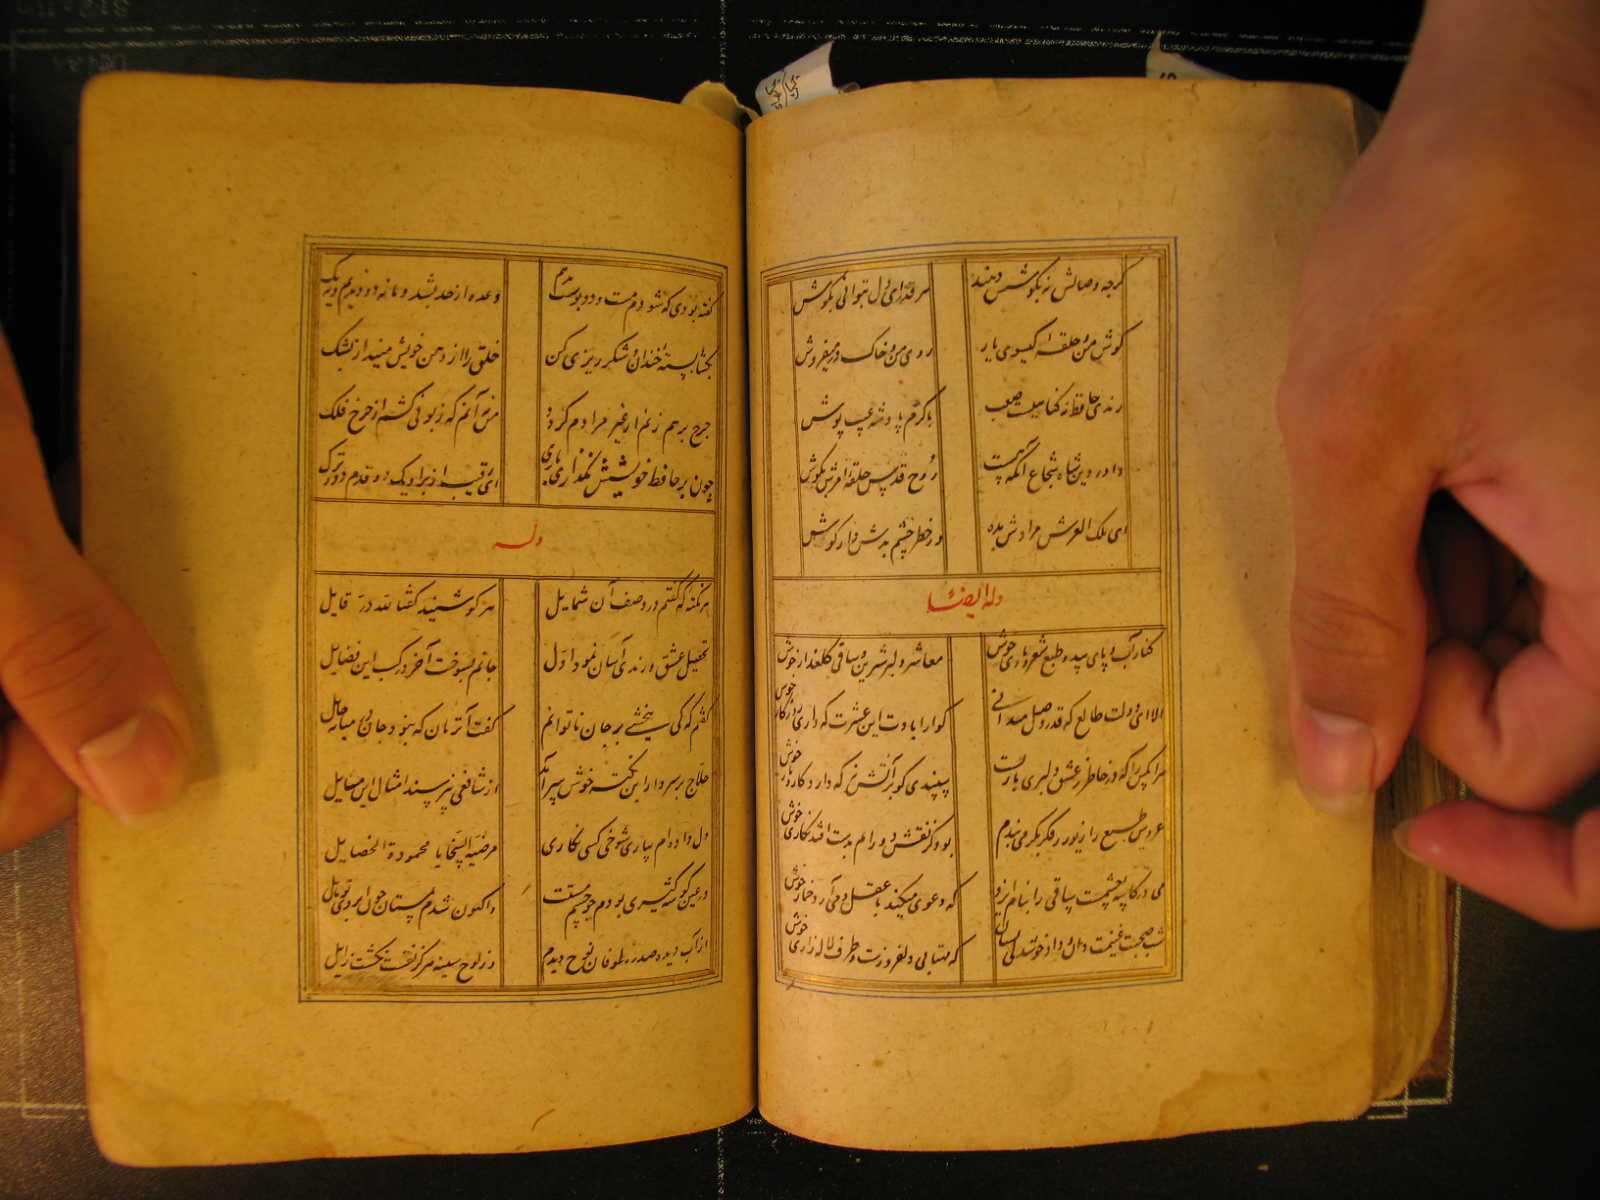 گرچه وصالش نه بکوشش دهند
هر قدر ای دل که توانی بکوش
گوش من و حلقه گیسوی یار
روی من و خاک در میفروش
رندی حافظ نه گناهیست صعب
با کرم پادشه عیب پوش
داور دین شاه شجاع آنکه هست
روح قدس حلقه امرش بگوش
ای ملک العرش مرادش بده
وز خطر چشم بدش دار گوش
وله ایضا
کنار آب و پای بید و طبع شعر و یاری خوش
معاشر دلبر شیرین و ساقی گلعذار خوش
الا ای دولت طالع که قدر وصل میدانی
گوارا بادت این عشرت که داری روزگار خوش
هر آنکس را که در خاطر ز عشق دلبری باریست
سپندی گو بر آتش نه که دارد کار و بار خوش
عروس طبع را زیور ز فکر بکر می بندم
بود کز نقش دورانم بدست افتد نگاری خوش
می در کاسه چشمست ساقی را بنام ایزد
که دعوی میکند با عقل و می آرد خمار خوش
شب صحبت غنیمت دان و داد خوشدلی بستان
که مهتابی دلفروزست و طرف لاله زاری خوش
گفته بودی که شوم مست و دو بوست بدهم
وعده از حد بشد و ما نه دو دیدیم و نه یک
بگشا پسته خندان و شکر ریزی کن
خلق را از دهن خویش مینداز بشک
چرخ بر هم زنم ار غیر مرادم گردد
من نه آنم که زبونی کشم از چرخ فلک
چون بر حافظ خویشش نگذاری باری
ای رقیب از بر او یک دو قدم دورترک
وله
هر نکته که گفتم در وصف آن شمایل
هر کو شنید گفتا لله در قایل
تحصیل عشق و رندی آسان نمود اول
جانم بسوخت آخر در کسب این فضایل
گفتم که کی ببخشی بر جان ناتوانم
گفت آن زمان که نبود جان در میانه حایل
حلاج بر سر دار این نکته خوش سراید
از شافعی نپرسند امثال این مسایل
دل داده ام بیاری شوخی کشی نگاری
مرضیة السجایا محمودة الخصایل
در عین گوشه گیری بودم چو چشم مستت
واکنون شدم بمستان چون ابروی تو مایل
از آب دیده صد ره طوفان نوح دیدم
وز لوح سینه هرگز نقشت نگشت زایل